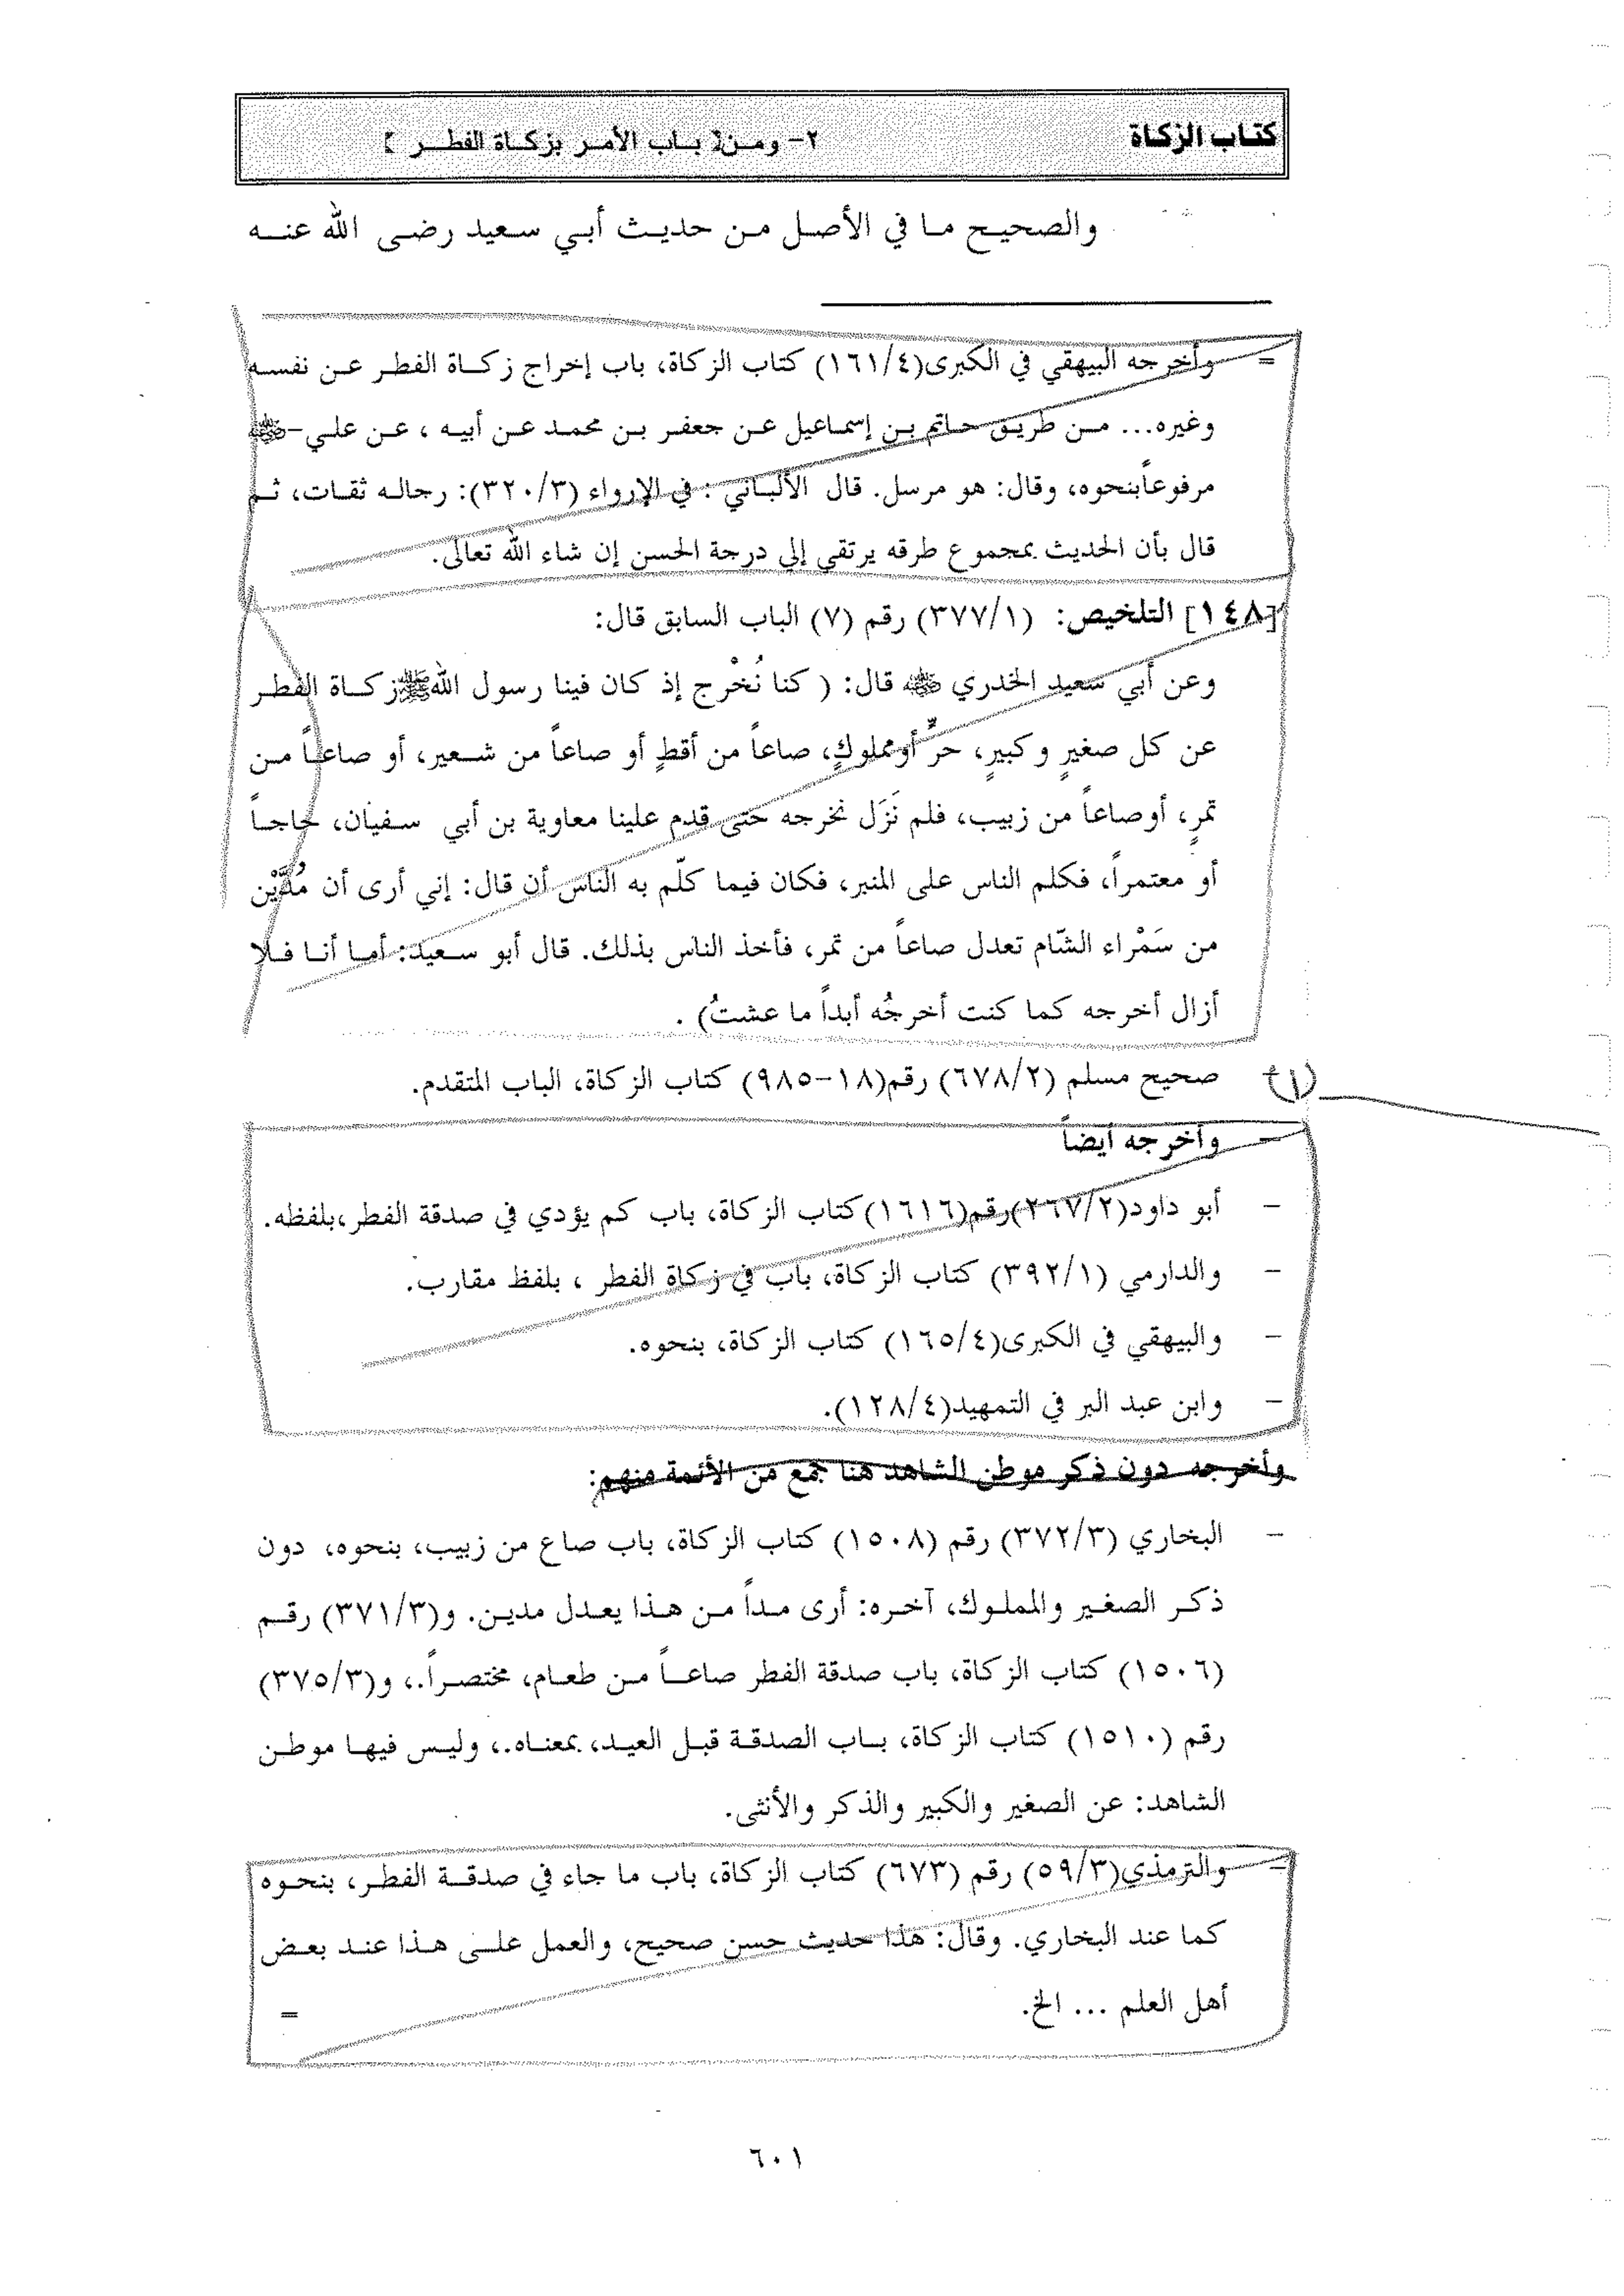 كتاب الزكاة ٢- ومن [ باب الأمر بزكاة الفطر ]
والصحيح ما في الأصل من حديث أبي سعيد رضى الله عنه
= وأخرجه البيهقي في الكبرى(١٦١/٤) كتاب الزكاة، باب إخراج زكاة الفطر عن نفسه
وغيره... من طريق حاتم بن إسماعيل عن جعفر بن محمد عن أبيه ، عن علي-رضي الله عنه
مرفوعاًبنحوه، وقال: هو مرسل. قال الألباني : في الإرواء (٣٢٠/٣): رجاله ثقات، ثم
قال بأن الحديث بمجموع طرقه يرتقي إلى درجة الحسن إن شاء الله تعالى.
[١٤٨] التلخيص: (٣٧٧/١) رقم (٧) الباب السابق قال:
وعن أبي سعيد الخدري رضي الله عنه قال: ( كنا نُخْرج إذ كان فينا رسول اللهﷺزكاة الفطر
عن كل صغيرٍ وكبيرٍ، حرٍّ أومملوكٍ، صاعاً من أقطٍ أو صاعاً من شعير، أو صاعاً من
تمرٍ، أوصاعاً من زبيب، فلم نَزَل نخرجه حتى قدم علينا معاوية بن أبي سفيان، حاجاً
أو معتمراً، فكلم الناس على المنبر، فكان فيما كلّم به الناس أن قال: إني أرى أن مُدَّيْن
من سَمْراء الشّام تعدل صاعاً من تمر، فأخذ الناس بذلك. قال أبو سعيد: أما أنا فلا
أزال أخرجه كما كنت أخرجُه أبداً ما عشتُ) .
(١) صحيح مسلم (٦٧٨/٢) رقم(١٨-٩٨٥) كتاب الزكاة، الباب المتقدم.
- وأخرجه أيضاً
- أبو داود(٢٦٧/٢)رقم(١٦١٦)كتاب الزكاة، باب كم يؤدي في صدقة الفطر،بلفظه.
- والدارمي (٣٩٢/١) كتاب الزكاة، باب في زكاة الفطر ، بلفظ مقارب.
- والبيهقي في الكبرى(١٦٥/٤) كتاب الزكاة، بنحوه.
- وابن عبد البر في التمهيد(١٢٨/٤).
وأخرجه دون ذكر موطن الشاهد هنا جمع من الأئمة منهم:
- البخاري (٣٧٢/٣) رقم (١٥٠٨) كتاب الزكاة، باب صاع من زبيب، بنحوه، دون
ذكر الصغير والمملوك، آخره: أرى مداً من هذا يعدل مدين. و(٣٧١/٣) رقم
(١٥٠٦) كتاب الزكاة، باب صدقة الفطر صاعاً من طعام، مختصراً.، و(٣٧٥/٣)
رقم (١٥١٠) كتاب الزكاة، باب الصدقة قبل العيد، بمعناه.، وليس فيها موطن
الشاهد: عن الصغير والكبير والذكر والأنثى.
- والترمذي(٥٩/٣) رقم (٦٧٣) كتاب الزكاة، باب ما جاء في صدقة الفطر، بنحوه
كما عند البخاري. وقال: هذا حديث حسن صحيح، والعمل على هذا عند بعض
أهل العلم ... الخ. =
٦٠١